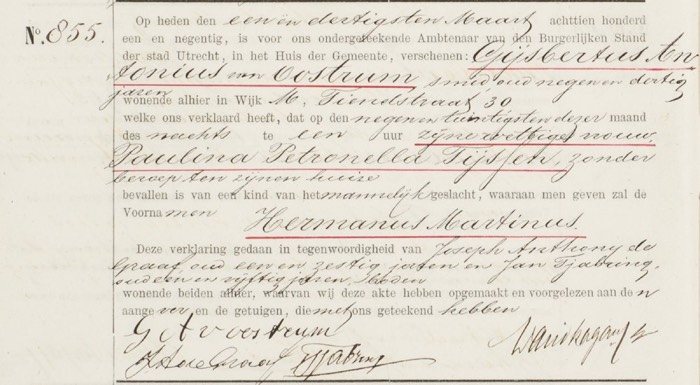 Nº. 855.
Op heden den een en dertigsten Maart achttien honderd
een en negentig, is voor ons ondergeteekende Ambtenaar van den Burgerlijken Stand
der stad Utrecht, in het Huis der Gemeente, verschenen: Gijsbertus An
tonius van Oostrum, smid, oud negen en dertig
jaren
wonende alhier in Wijk M, Tiendstraat, 30
welke ons verklaard heeft, dat op den negen en twintigsten dezer maand
des nachts te een uur zijne wettige vrouw,
Paulina Petronella Tijssen, zonder
beroep ten zijnen huize
bevallen is van een kind van het mannelijk geslacht, waaraan men geven zal de
Voornamen
Hermanus Martinus.
Deze verklaring gedaan in tegenwoordigheid van Joseph Anthony de
Graaf, oud een en zestig jaren en Jan Tjabring,
oud een en vijftig jaren, boden
wonende beiden alhier, waarvan wij deze akte hebben opgemaakt en voorgelezen aan den
aangever en de getuigen, die met ons geteekend hebben
G A v oostrum
J A de Graaf JTjabring